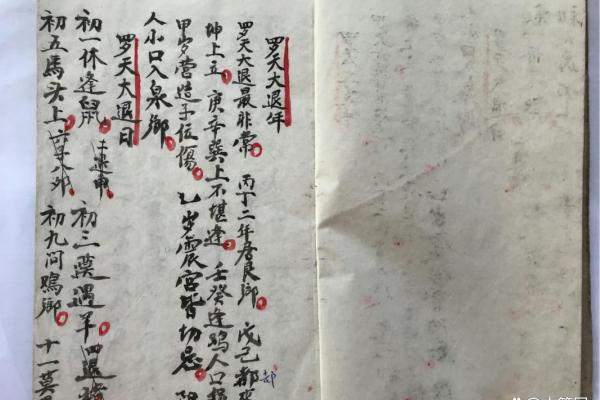 罗天大退年
罗天大退最非常 丙丁二年居艮鄉 戊己都來
坤上立 庚辛巽上不堪逢 壬癸逢鸡人口損
甲岁营造子位傷 乙岁震宫皆切忌
人小口入泉鄉
罗天大退日
初一休逢鼠 初三莫遇羊
初五馬头上 初九问鸡鄉 十一莫